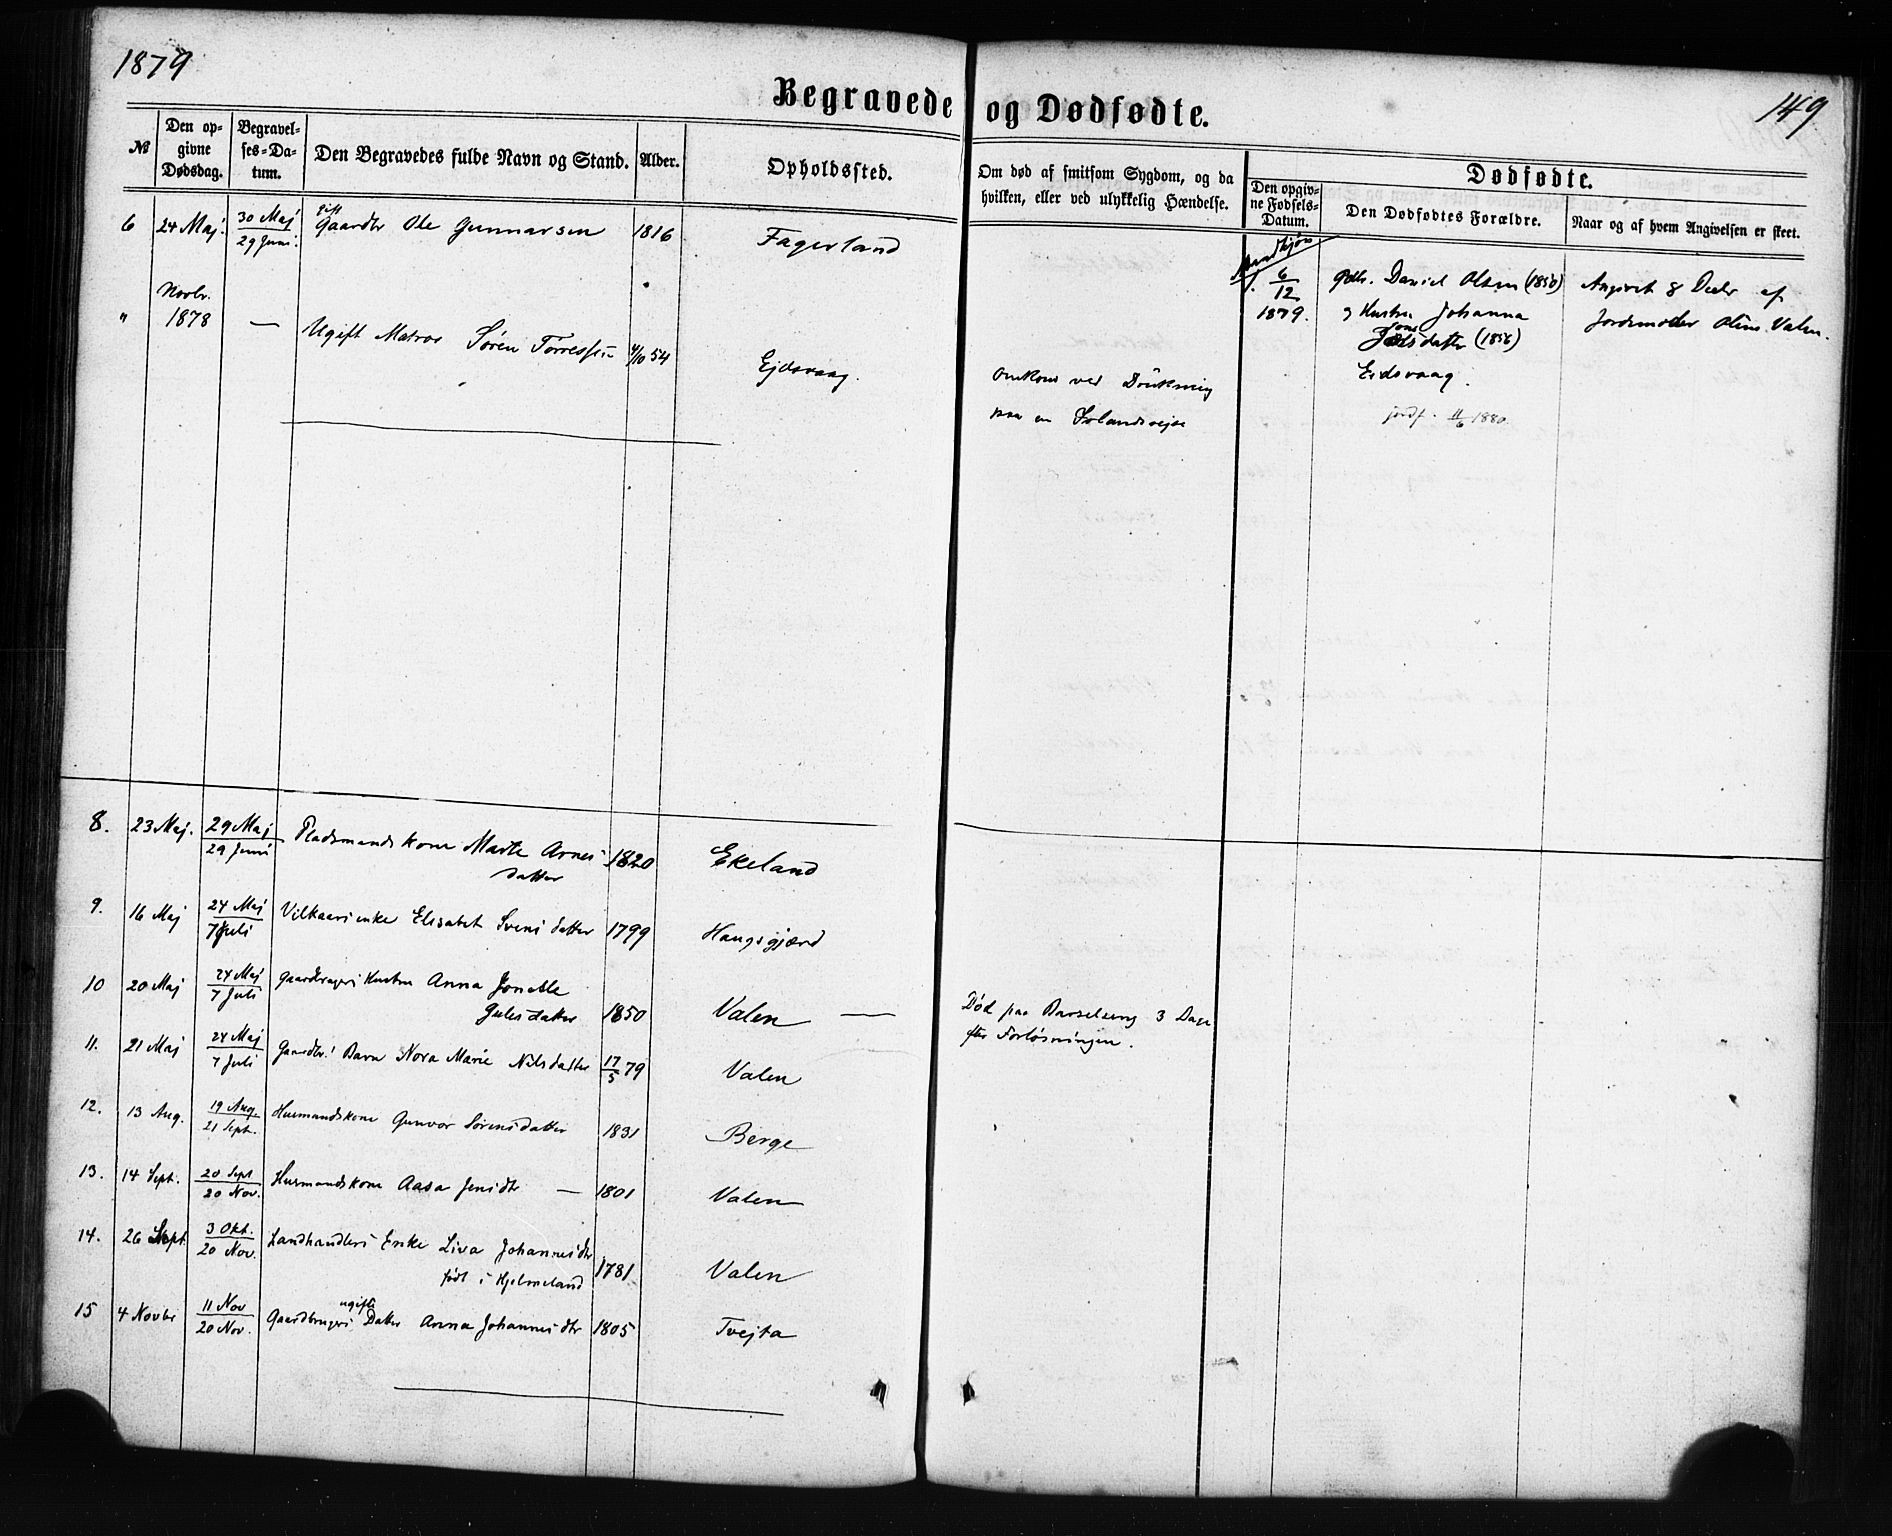 1879
149
Begravede og Dødfødte.
№
Den opgivne Dødsdag.
Begravelses-Datum.
Den Begravedes fulde Navn og Stand.
Alder.
Opholdssted.
Om død af smitsom Sygdom, og da hvilken, eller ved ulykkelig Hændelse.
Dødfødte.
Den opgivne Fødsels-Datum.
Den Dødfødtes Forældre.
Naar og af hvem Angivelsen er skeet.
6 24 Maj. 30 Maj / 29 Juni. gift Gaardbr Ole Gunnarsen 1816 Fagerland
" Novbr. 1878 — Ugift Matros Søren Torressen 4/10 54 Ejdsvaag.
Omkom ved Drukning
paa en Islandsrejse
1. 6/12 1879.
Gbr. Daniel Olsen (1850)
og Hustru Johanna
Jonsdatter (1856)
Eidsvaag.
jordf. 11/6 1880.
Angivet 8 Decbr af
Jordemoder Oline Valen.
8. 23 Maj. 29 Maj / 29 Juni Pladsmandskone Marte Arnes
datter 1820 Ekeland
9. 16 Maj 24 Maj / 7 Juli Vilkaarsenke Elisabet Svensdatter 1799 Haugsgjærd
10 20 Maj 24 Maj / 7 Juli Gaardbrugers Hustru Anna Jonette
Gulesdatter 1850 Valen —
Død paa Barselseng 3 Dage
efter Forløsningen.
11. 21 Maj 24 Maj / 7 Juli Gaardbr.s Barn Nora Marie Nilsdatter 17/5 79 Valen
12. 13 Aug. 19 Aug. / 21 Sept. Husmandskone Gunvor Sørensdatter 1831 Berge
13. 14 Sept. 20 Sept / 20 Nov. Husmandskone Aasa Jensdtr — 1801 Valen
14. 26 Sept. 3 Okt. / 20 Nov. Landhandlers Enke Liva Johannesdtr
født i Hjelmeland 1781 Valen
15 4 Novbr 11 Nov / 20 Nov. Gaardbrugers ugifte Datter Anna Johannesdtr 1805 Tvejta